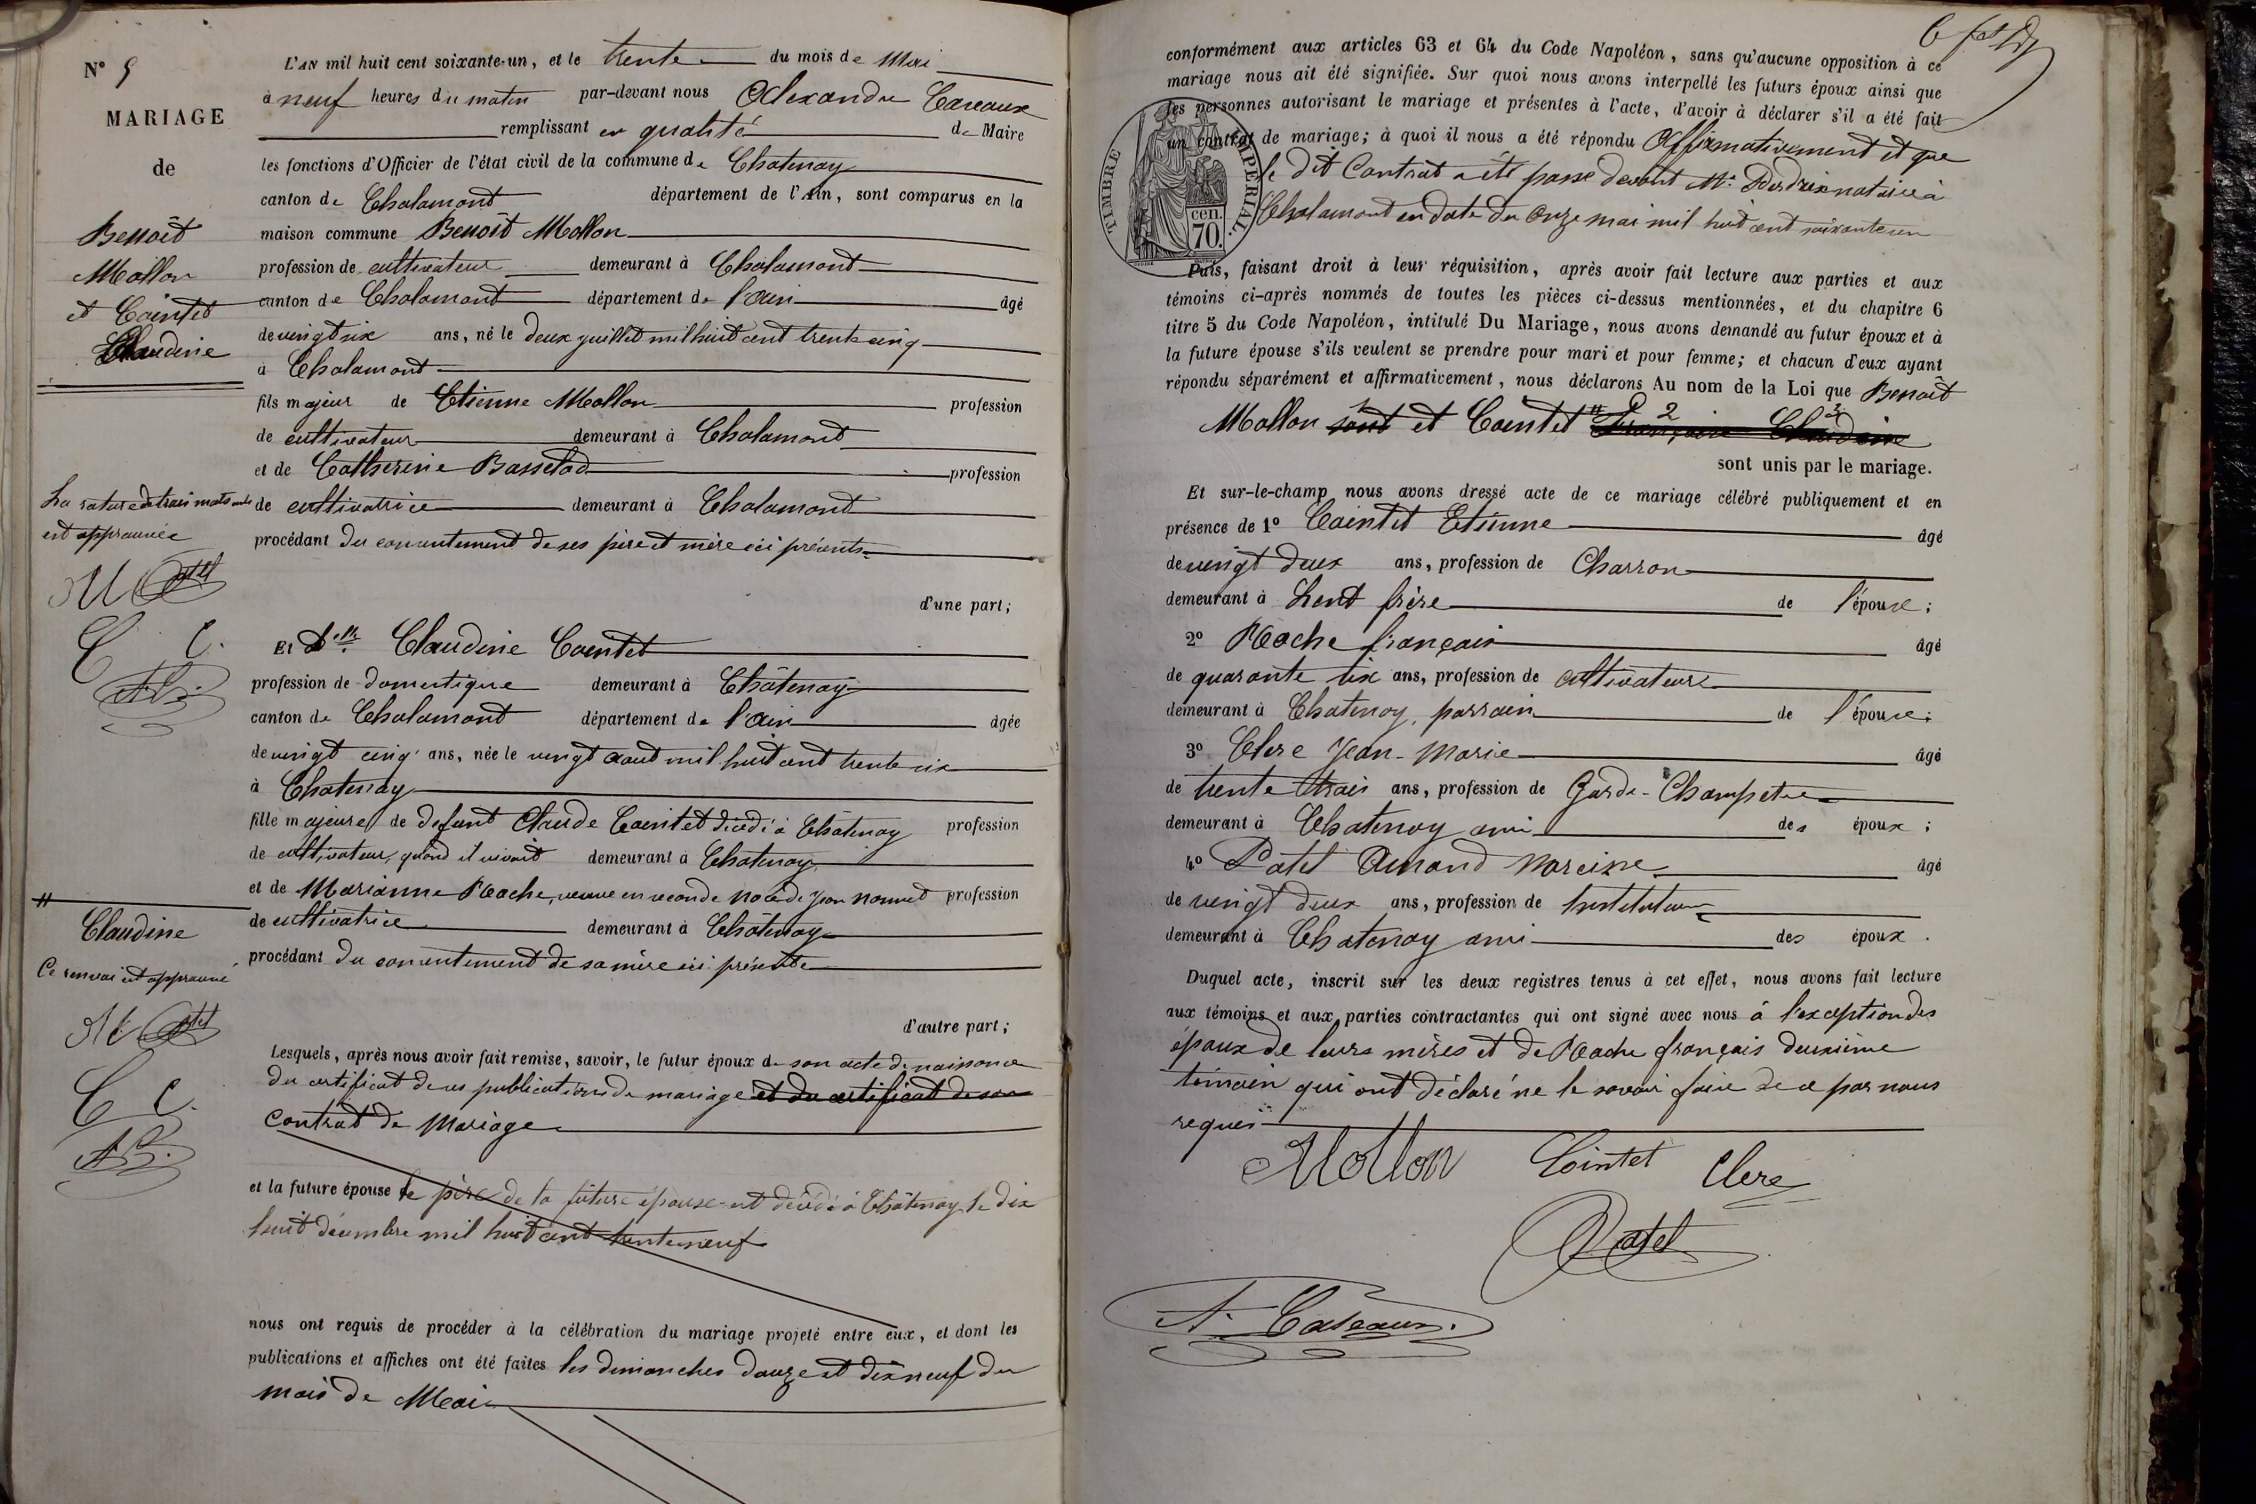 N° 5
MARIAGE
de
Benoît
Mollon
et Cointet
Claudine
L'AN mil huit cent soixante-un, et le trente du mois de Mai
à neuf heures du matin par-devant nous Alexandre Caseaux
remplissant en qualité de Maire
les fonctions d'Officier de l'état civil de la commune de Chatenay
canton de Chalamont département de l'Ain, sont comparus en la
maison commune Benoît Mollon
profession de cultivateur demeurant à Chalamont
canton de Chalamont département de l'Ain âgé
de vingt six ans, né le deux juillet mil huit cent trente cinq
à Chalamont
fils majeur de Etienne Mollon profession
de cultivateur demeurant à Chalamont
et de Catherine profession
de cultivatrice demeurant à Chalamont
procédant du consentement de ses père et mère ici présents
d'une part;
La rature de trois mots nuls
est approuvée
C C.
Et Dlle Claudine Cointet
profession de domestique demeurant à Châtenay
canton de Chalamont département de l'Ain âgée
de vingt cinq ans, née le vingt aout mil huit cent trente six
à Chatenay
fille majeure de defunt Claude Cointet décédé à Châtenay profession
de cultivateur, quand il vivait demeurant à Châtenay
et de Marianne Roche, veuve en seconde noce de Jean Monnet profession
de cultivatrice demeurant à Châtenay
procédant du consentement de sa mère ici présente
d'autre part;
Claudine
Ce renvoi est approuvé
C C.
A.C.
Lesquels, après nous avoir fait remise, savoir, le futur époux de son acte de naissance
du certificat de ses publications de mariage et du certificat de son
contrat de Mariage
et la future épouse le père de la future épouse est décédé à Châtenay le dix
huit décembre mil huit cent trente neuf
nous ont requis de procéder à la célébration du mariage projeté entre eux, et dont les
publications et affiches ont été faites les dimanches douze et dix neuf du
mois de Mai
conformément aux articles 63 et 64 du Code Napoléon, sans qu'aucune opposition à ce
mariage nous ait été signifiée. Sur quoi nous avons interpellé les futurs époux ainsi que
les personnes autorisant le mariage et présentes à l'acte, d'avoir à déclarer s'il a été fait
un contrat de mariage; à quoi il nous a été répondu Affirmativement et que
le dit Contrat a été passé devant Me Perdrix notaire à
Chalamont en date du onze mai mil huit cent soixante un
TIMBRE IMPÉRIAL.
cen.
70.
Puis, faisant droit à leur réquisition, après avoir fait lecture aux parties et aux
témoins ci-après nommés de toutes les pièces ci-dessus mentionnées, et du chapitre 6
titre 5 du Code Napoléon, intitulé Du Mariage, nous avons demandé au futur époux et à
la future épouse s'ils veulent se prendre pour mari et pour femme; et chacun d'eux ayant
répondu séparément et affirmativement, nous déclarons Au nom de la Loi que Benoît
Mollon sont et Cointet Françoise Claudine
sont unis par le mariage.
Et sur-le-champ nous avons dressé acte de ce mariage célébré publiquement et en
présence de 1° Cointet Etienne âgé
de vingt deux ans, profession de Charron
demeurant à Lent frère de l'épouse;
2° Roche françois âgé
de quarante six ans, profession de cultivateur
demeurant à Chatenay, parrain de l'épouse;
3° Clerc Jean-Marie âgé
de trente trois ans, profession de Garde-Champetre
demeurant à Chatenay ami des époux;
4° Patel Amand Narcisse âgé
de vingt deux ans, profession de Instituteur
demeurant à Chatenay ami des époux.
Duquel acte, inscrit sur les deux registres tenus à cet effet, nous avons fait lecture
aux témoins et aux parties contractantes qui ont signé avec nous à l'exception des
époux de leurs mères et de Roche françois deuxième
témoin qui ont déclaré ne le savoir faire de ce par nous
requis
Mollon Cointet Clerc
Patel
A. Caseaux.